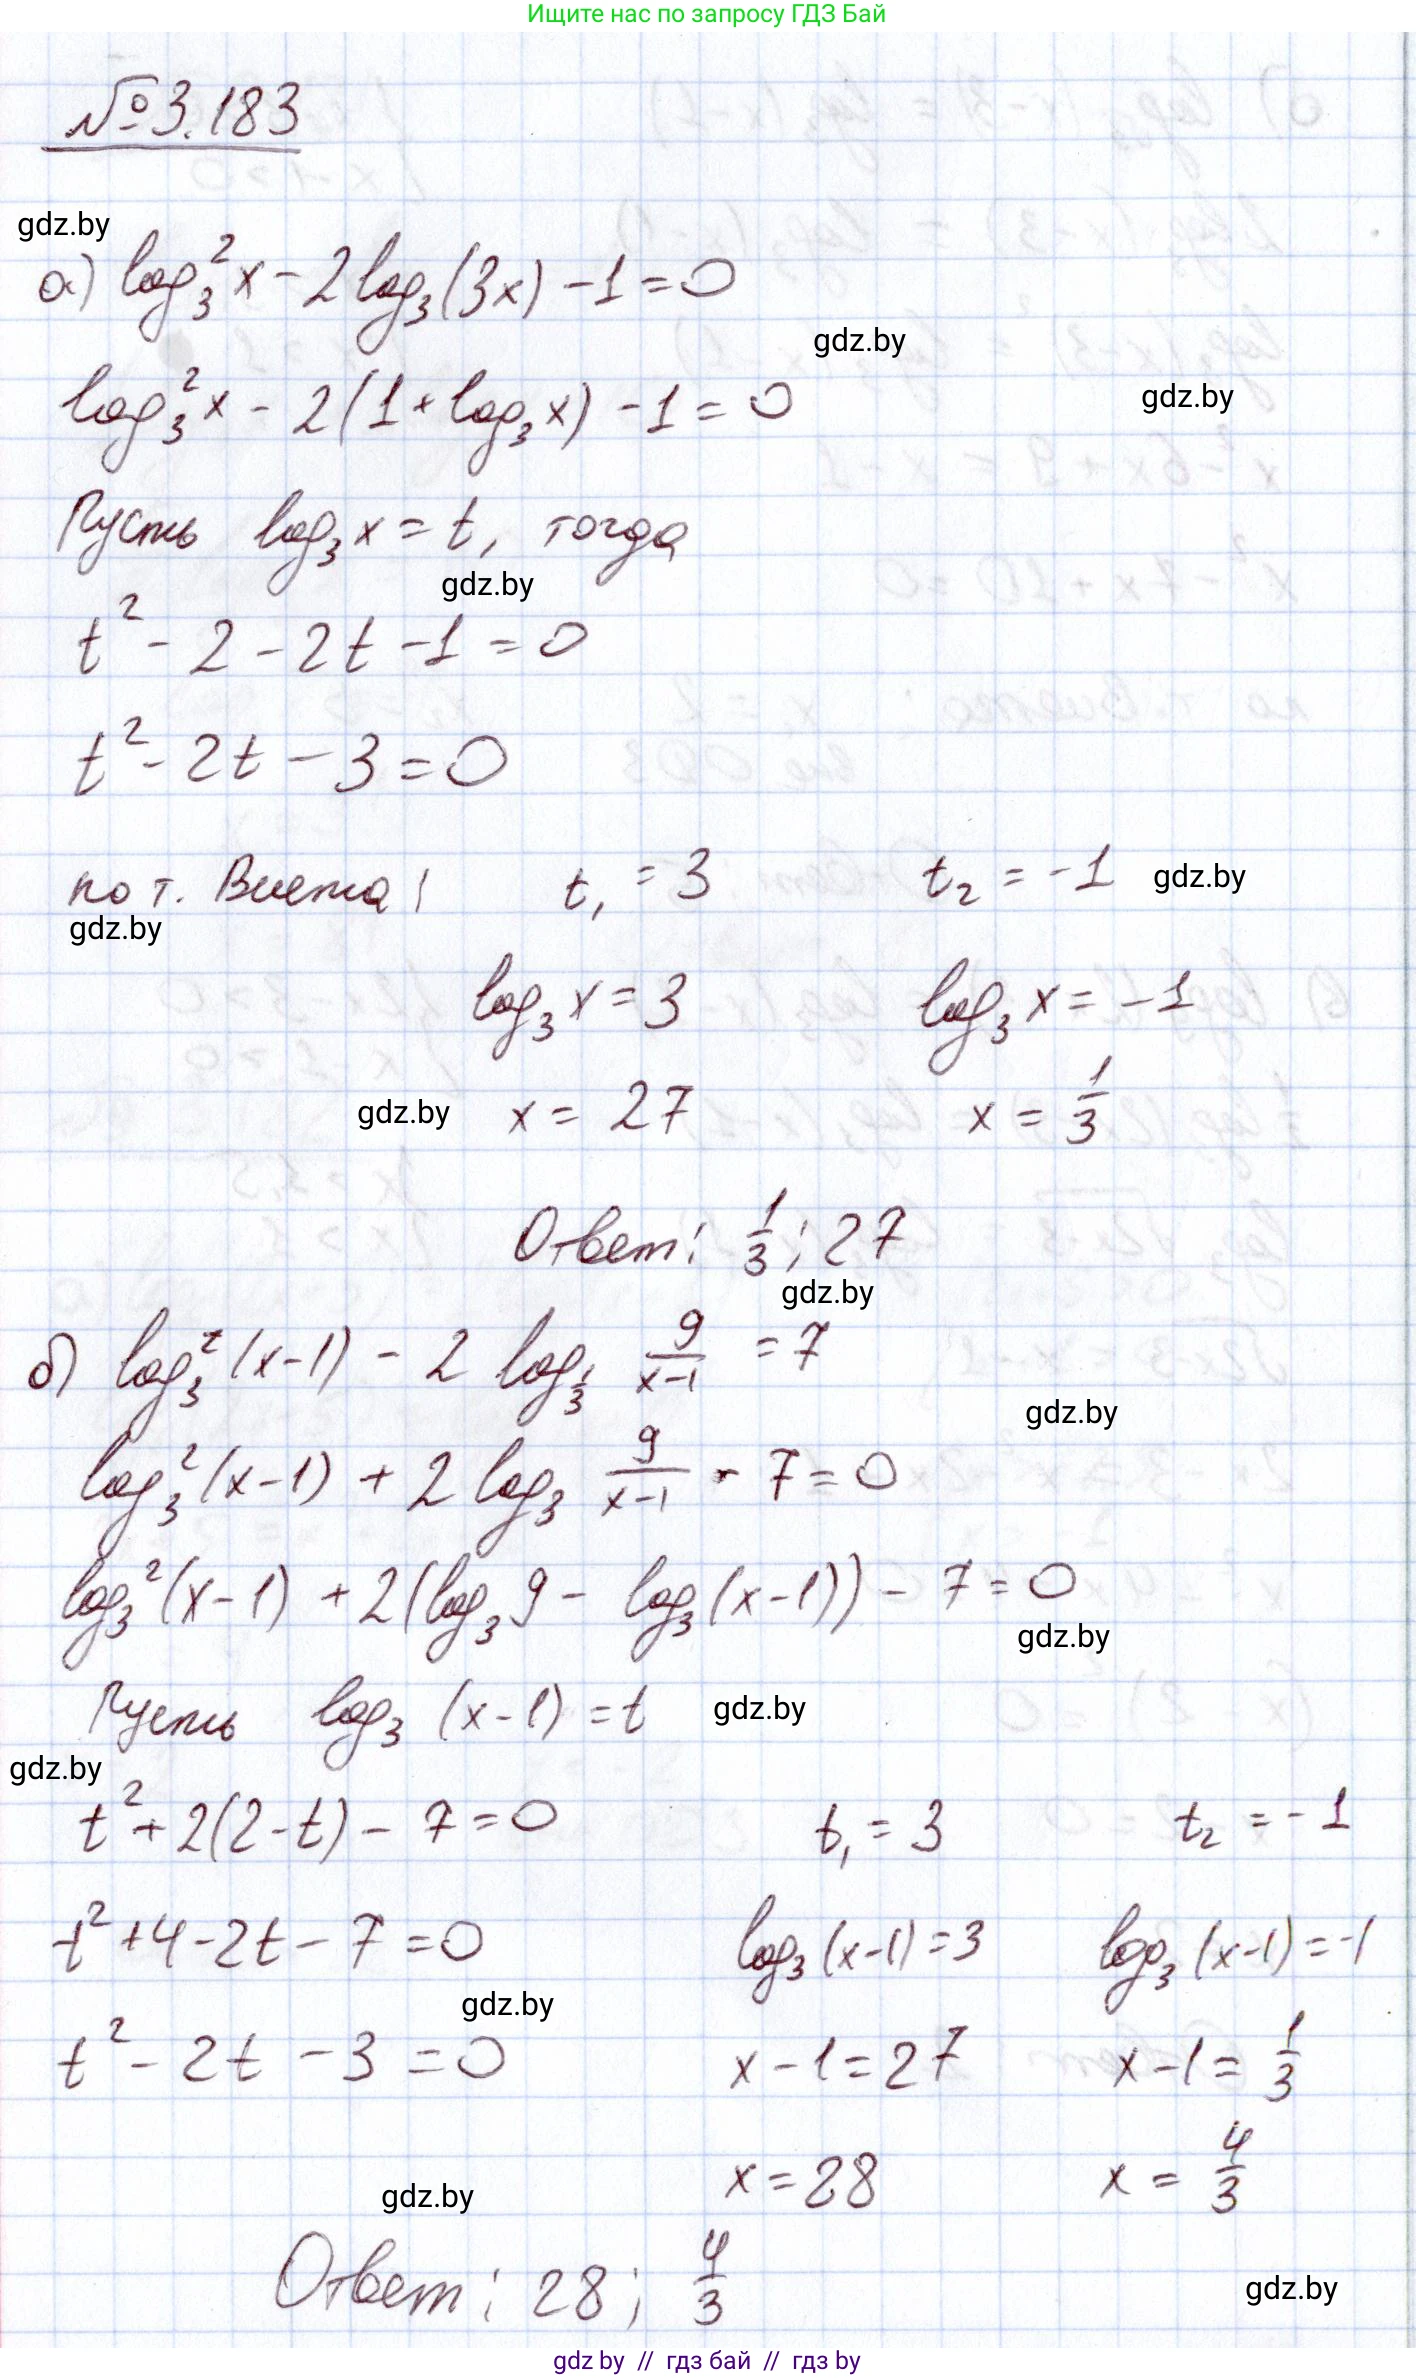 Ищите нас по запросу ГДЗ Бай
№3.183
gdz.by
а) log₃²x - 2log₃(3x) - 1 = 0
gdz.by
log₃²x - 2(1 + log₃x) - 1 = 0
gdz.by
Пусть log₃x = t, тогда
gdz.by
t² - 2 - 2t - 1 = 0
t² - 2t - 3 = 0
по т. Виета: t₁ = 3 t₂ = -1 gdz.by
gdz.by
log₃x = 3 log₃x = -1
gdz.by x = 27 x = 1/3
Ответ: 1/3; 27
gdz.by
б) log₃²(x-1) - 2 log_{1/3} 9/(x-1) = 7
gdz.by
log₃²(x-1) + 2 log₃ 9/(x-1) - 7 = 0
log₃²(x-1) + 2(log₃9 - log₃(x-1)) - 7 = 0
gdz.by
Пусть log₃(x-1) = t gdz.by
gdz.by
t² + 2(2-t) - 7 = 0 t₁ = 3 t₂ = -1
t² + 4 - 2t - 7 = 0 log₃(x-1) = 3 log₃(x-1) = -1
gdz.by
t² - 2t - 3 = 0 x - 1 = 27 x - 1 = 1/3
gdz.by x = 28 x = 4/3
Ответ: 28; 4/3
gdz.by
gdz by // гдз бай // гдз by